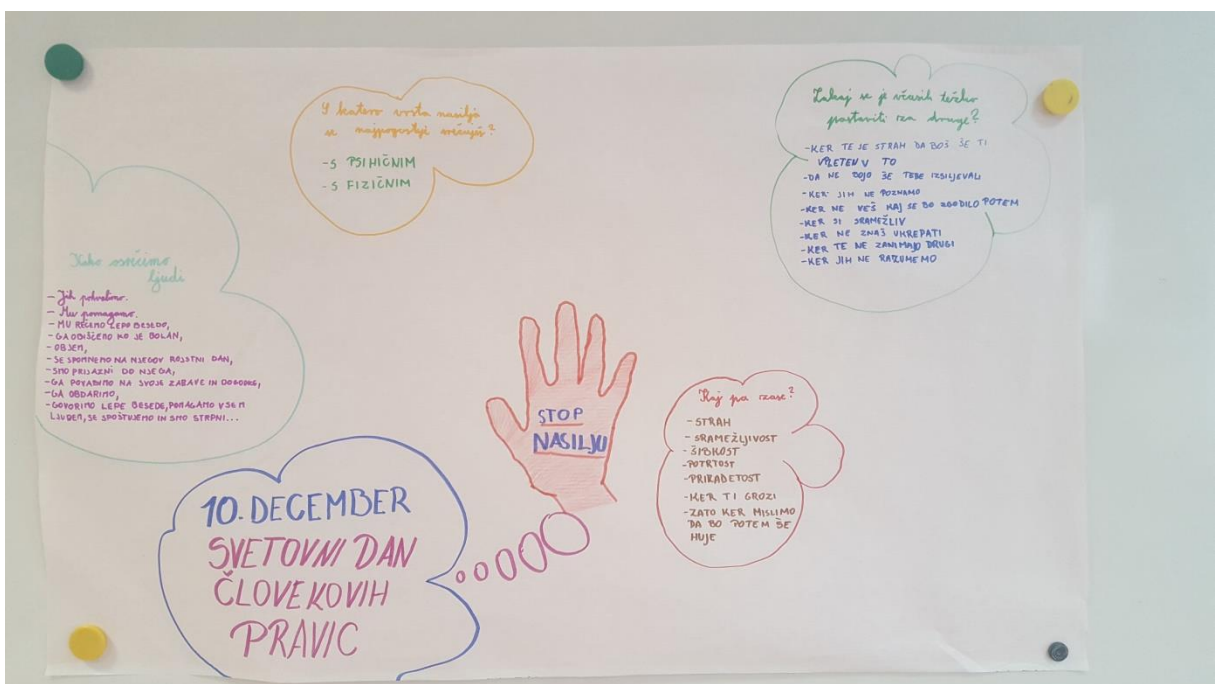 S katero vrsto nasilja
se najpogosteje srečuješ?
-S PSIHIČNIM
-S FIZIČNIM
Zakaj se je včasih težko
postaviti za druge?
-KER TE JE STRAH DA BOŠ ŠE TI
VPLETEN V TO
-DA NE BOJO ŠE TEBE IZSILJEVALI
-KER JIH NE POZNAMO
-KER NE VEŠ KAJ SE BO ZGODILO POTEM
-KER SI SRAMEŽLIV
-KER NE ZNAŠ UKREPATI
-KER TE NE ZANIMAJO DRUGI
-KER JIH NE RAZUMEMO
Kako osrečimo
ljudi
- Jih pohvalimo.
- Mu pomagamo.
- MU REČEMO LEPO BESEDO,
-GA OBIŠČEMO KO JE BOLAN,
-OBJEM,
-SE SPOMNEMO NA NJEGOV ROJSTNI DAN,
-SMO PRIJAZNI DO NJEGA,
-GA POVABIMO NA SVOJE ZABAVE IN DOGODKE,
-GA OBDARIMO,
-GOVORIMO LEPE BESEDE, POMAGAMO VSEM
LJUDEM, SE SPOŠTUJEMO IN SMO STRPNI...
STOP
NASILJU
Kaj pa zase?
-STRAH
- SRAMEŽLJIVOST
-ŠIBKOST
-POTRTOST
-PRIZADETOST
-KER TI GROZI
-ZATO KER MISLIMO
DA BO POTEM ŠE
HUJE
10. DECEMBER
SVETOVNI DAN
ČLOVEKOVIH
PRAVIC